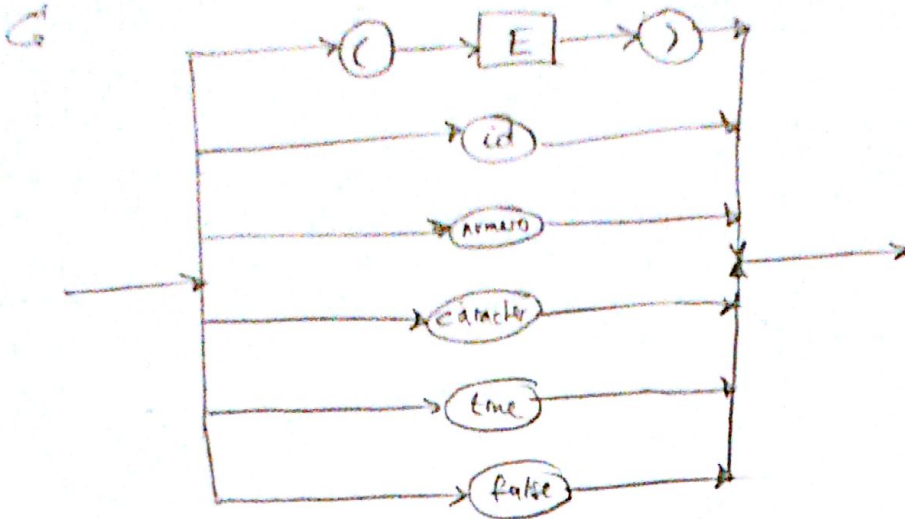 G
( E )
id
numero
caracter
true
false